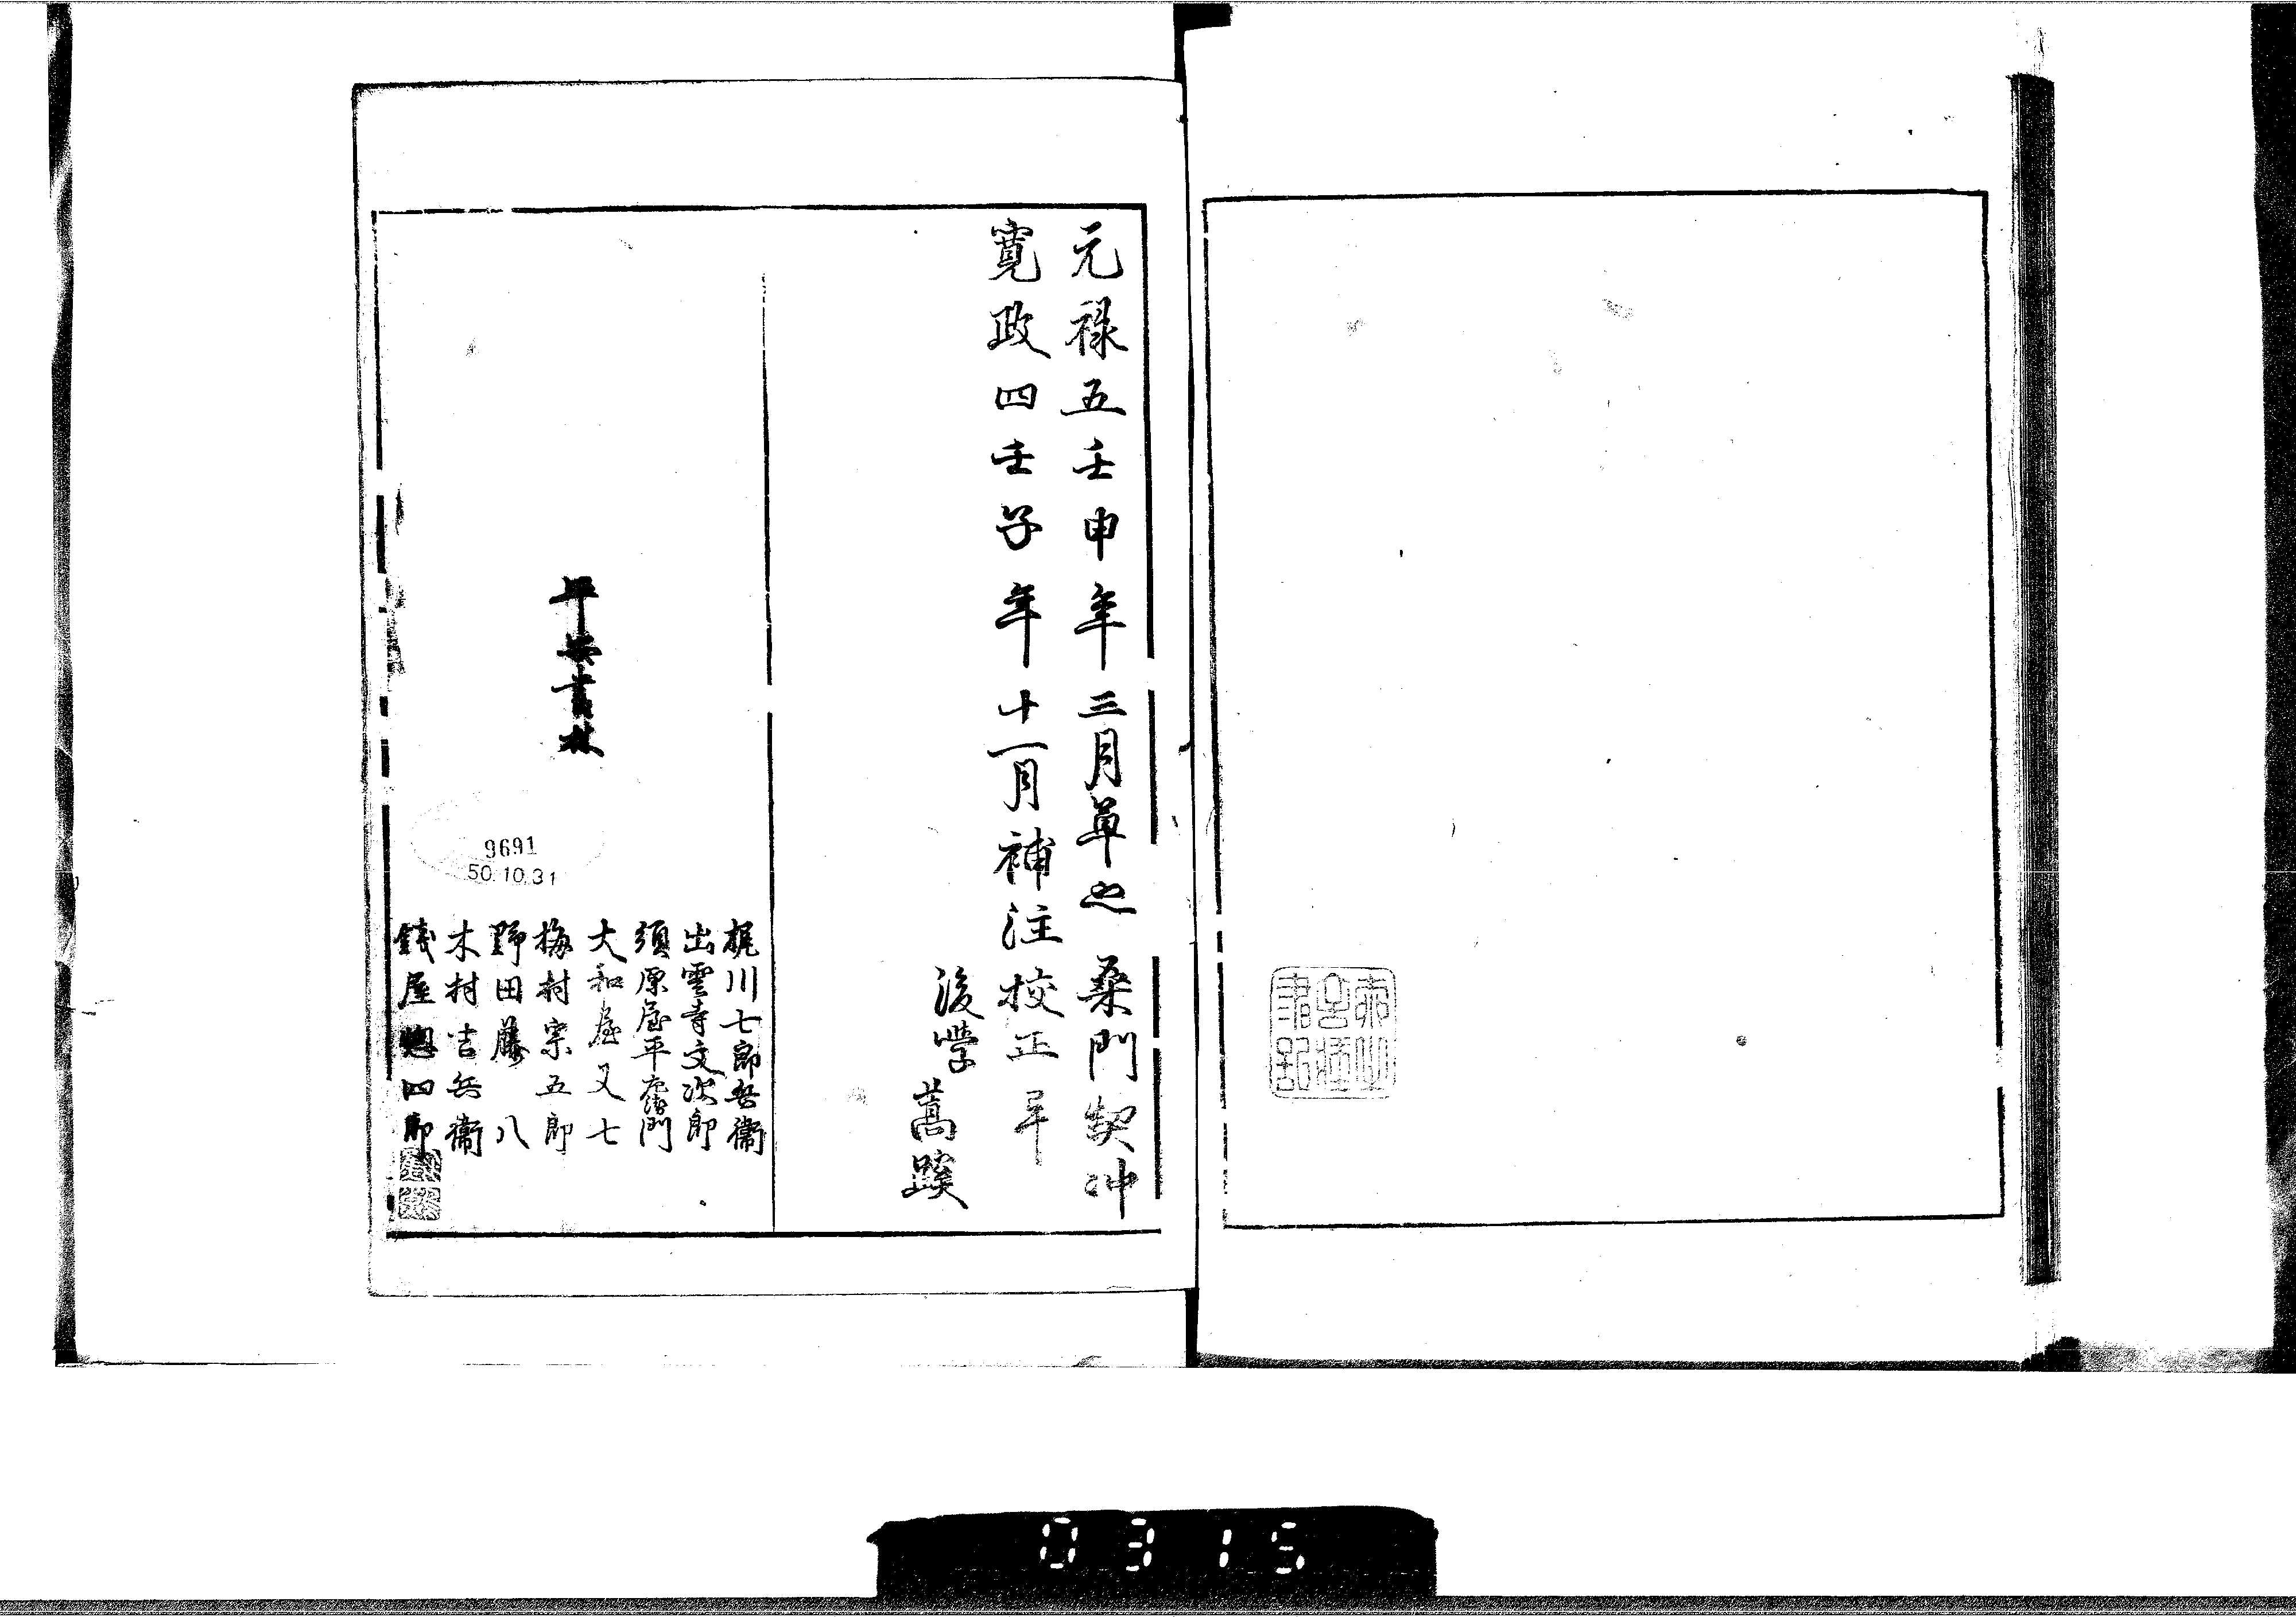 元禄五壬申年三月草之 桑門契冲
寛政四壬子年十一月補注校正畢
後學 蒿蹊
平安書林
梶川七郎兵衞
出雲寺文次郎
須原屋平左衛門
大和屋又七
梅村宗五郎
野田藤八
木村吉兵衞
錢屋惣四郎
9691
50.10.31
0315